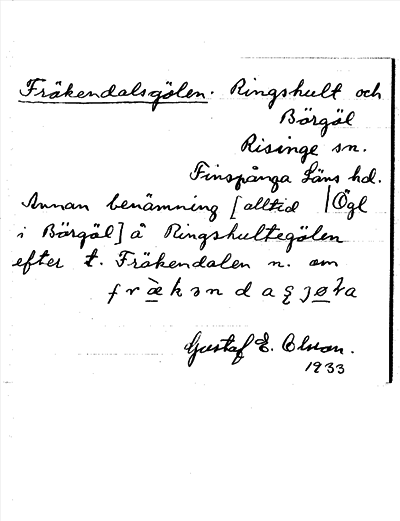 Fräkendalsgölen. Ringshult och
Börgöl
Risinge sn.
Finspånga Läns hd.
Annan benämning [alltid | Ögl
i Börgöl] å Ringshultegölen
efter t. Fräkendalen n. om
Gustaf E. Olsson.
1933